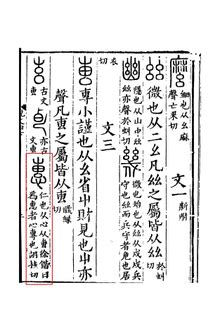 細也从幺麻聲亡果切
文一 新附
𢆶 微也从二幺凡𢆶之屬皆从𢆶 於虯切
幽 隱也从山中𢆶𢆶亦聲於虯切 幾 微也殆也从𢆶从戍戍兵守也𢆶而兵守者危也居
衣切
文三
叀 專小謹也从幺省屮財見也屮亦
聲凡叀之屬皆从叀 職緣切
古文叀 亦古文叀 惠 仁也从心从叀徐鍇曰為惠者心專也胡桂切